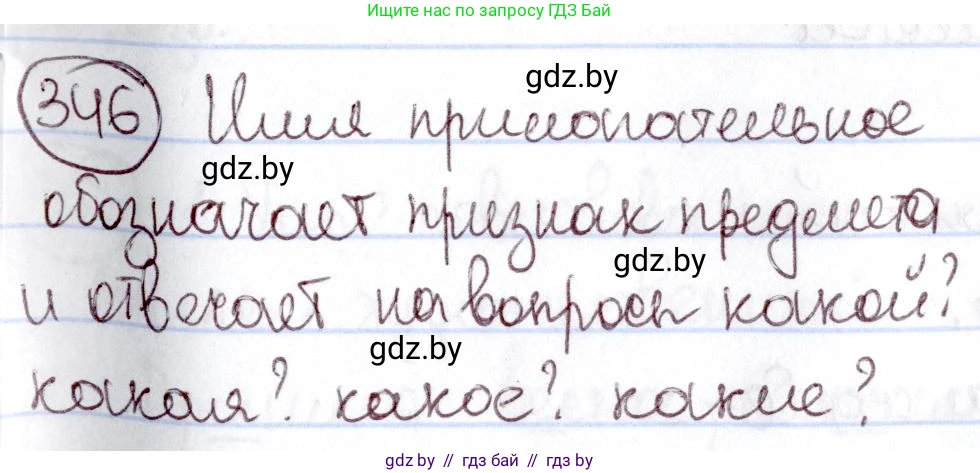 Ищите нас по запросу ГДЗ Бай
gdz.by
346 Имя прилагательное
gdz.by
обозначает признак предмета
gdz.by
и отвечает на вопросы какой?
gdz.by
какая? какое? какие?
gdz.by // гдз бай // гдз by